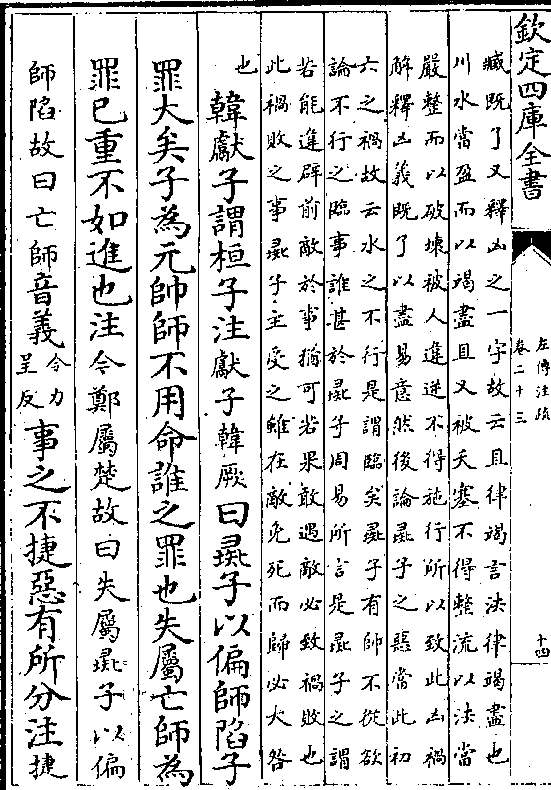 欽定四庫全書
左傳注疏
卷二十三
十四
臧既了又釋凶之一字故云且律竭言法律竭盡也
川水當盈而以竭盡且又被夭塞不得整流以法當
嚴整而以破壊被人違逆不得施行所以致此凶禍
解釋凶義既了以盡易意然後論彘子之惡當此初
六之禍故云水之不行是謂臨矣彘子有帥不從欲
論不行之臨事誰甚於彘子周易所言是彘子之謂
若能進辟前敵於事猶可若果敢遇敵必致禍敗也
此禍敗之事彘子主受之雖在敵免死而歸必大咎
也
韓獻子謂桓子注獻子韓厥曰彘子以偏師陷子
罪大矣子為元帥師不用命誰之罪也失屬亡師為
罪已重不如進也注今鄭屬楚故曰失屬彘子以偏
師陷故曰亡師音義令力
呈反
事之不捷惡有所分注捷